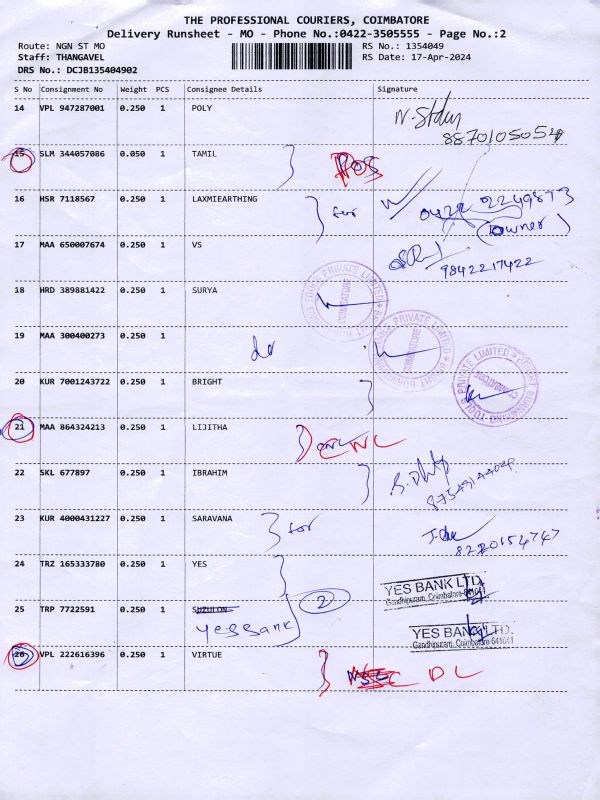 THE PROFESSIONAL COURIERS, COIMBATORE
Delivery Runsheet - MO - Phone No.:0422-3505555 - Page No.:2
Route: NGN ST MO
RS No.: 1354049
Staff: THANGAVEL
RS Date: 17-Apr-2024
DRS No.: DCJB135404902
S No Consignment No Weight PCS Consignee Details Signature
14 VPL 947287001 0.250 1 POLY
15 SLM 344057086 0.050 1 TAMIL
16 HSR 7118567 0.250 1 LAXMIEARTHING for
(owner)
17 MAA 650007674 0.250 1 VS
9842217422
18 HRD 389881422 0.250 1 SURYA
19 MAA 300400273 0.250 1
20 KUR 7001243722 0.250 1 BRIGHT
21 MAA 864324213 0.250 1 LIJITHA CNL
22 SKL 677897 0.250 1 IBRAHIM
23 KUR 4000431227 0.250 1 SARAVANA for
8220154747
24 TRZ 165333780 0.250 1 YES
YES BANK LTD.
Gandhipuram, Coimbatore
25 TRP 7722591 0.250 1 SUZULON 2
Yes Bank
YES BANK LTD.
Gandhipuram, Coimbatore-641011
26 VPL 222616396 0.250 1 VIRTUE DL